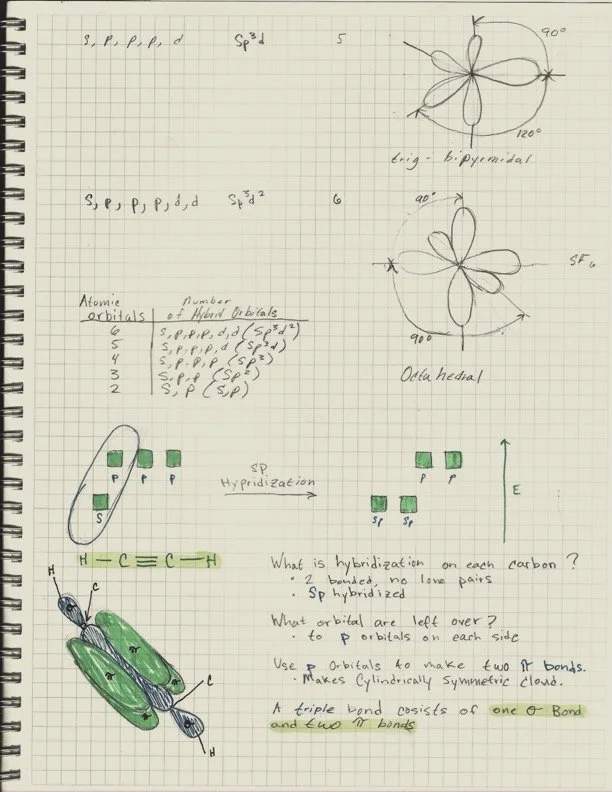 s, p, p, p, d    sp³d    5
90°
120°
trig - bipyrmidal
s, p, p, p, d, d    sp³d²    6
90°
SF₆
90°
Octahedral
Atomic orbitals | Number of Hybrid Orbitals
6 | s, p, p, p, d, d (sp³d²)
5 | s, p, p, p, d (sp³d)
4 | s, p, p, p (sp³)
3 | s, p, p (sp²)
2 | s, p (s,p)
P P P
S
sp
Hypridization
P P
sp sp
E
H - C ≡ C - H
What is hybridization on each carbon?
• 2 bonded, no lone pairs
• Sp hybridized
What orbital are left over?
• to p orbitals on each side
Use p Orbitals to make two π bonds.
• Makes Cylindrically Symmetric cloud.
A triple bond cosists of one σ Bond
and two π bonds
H
C
σ
π
π
π
π
C
σ
H